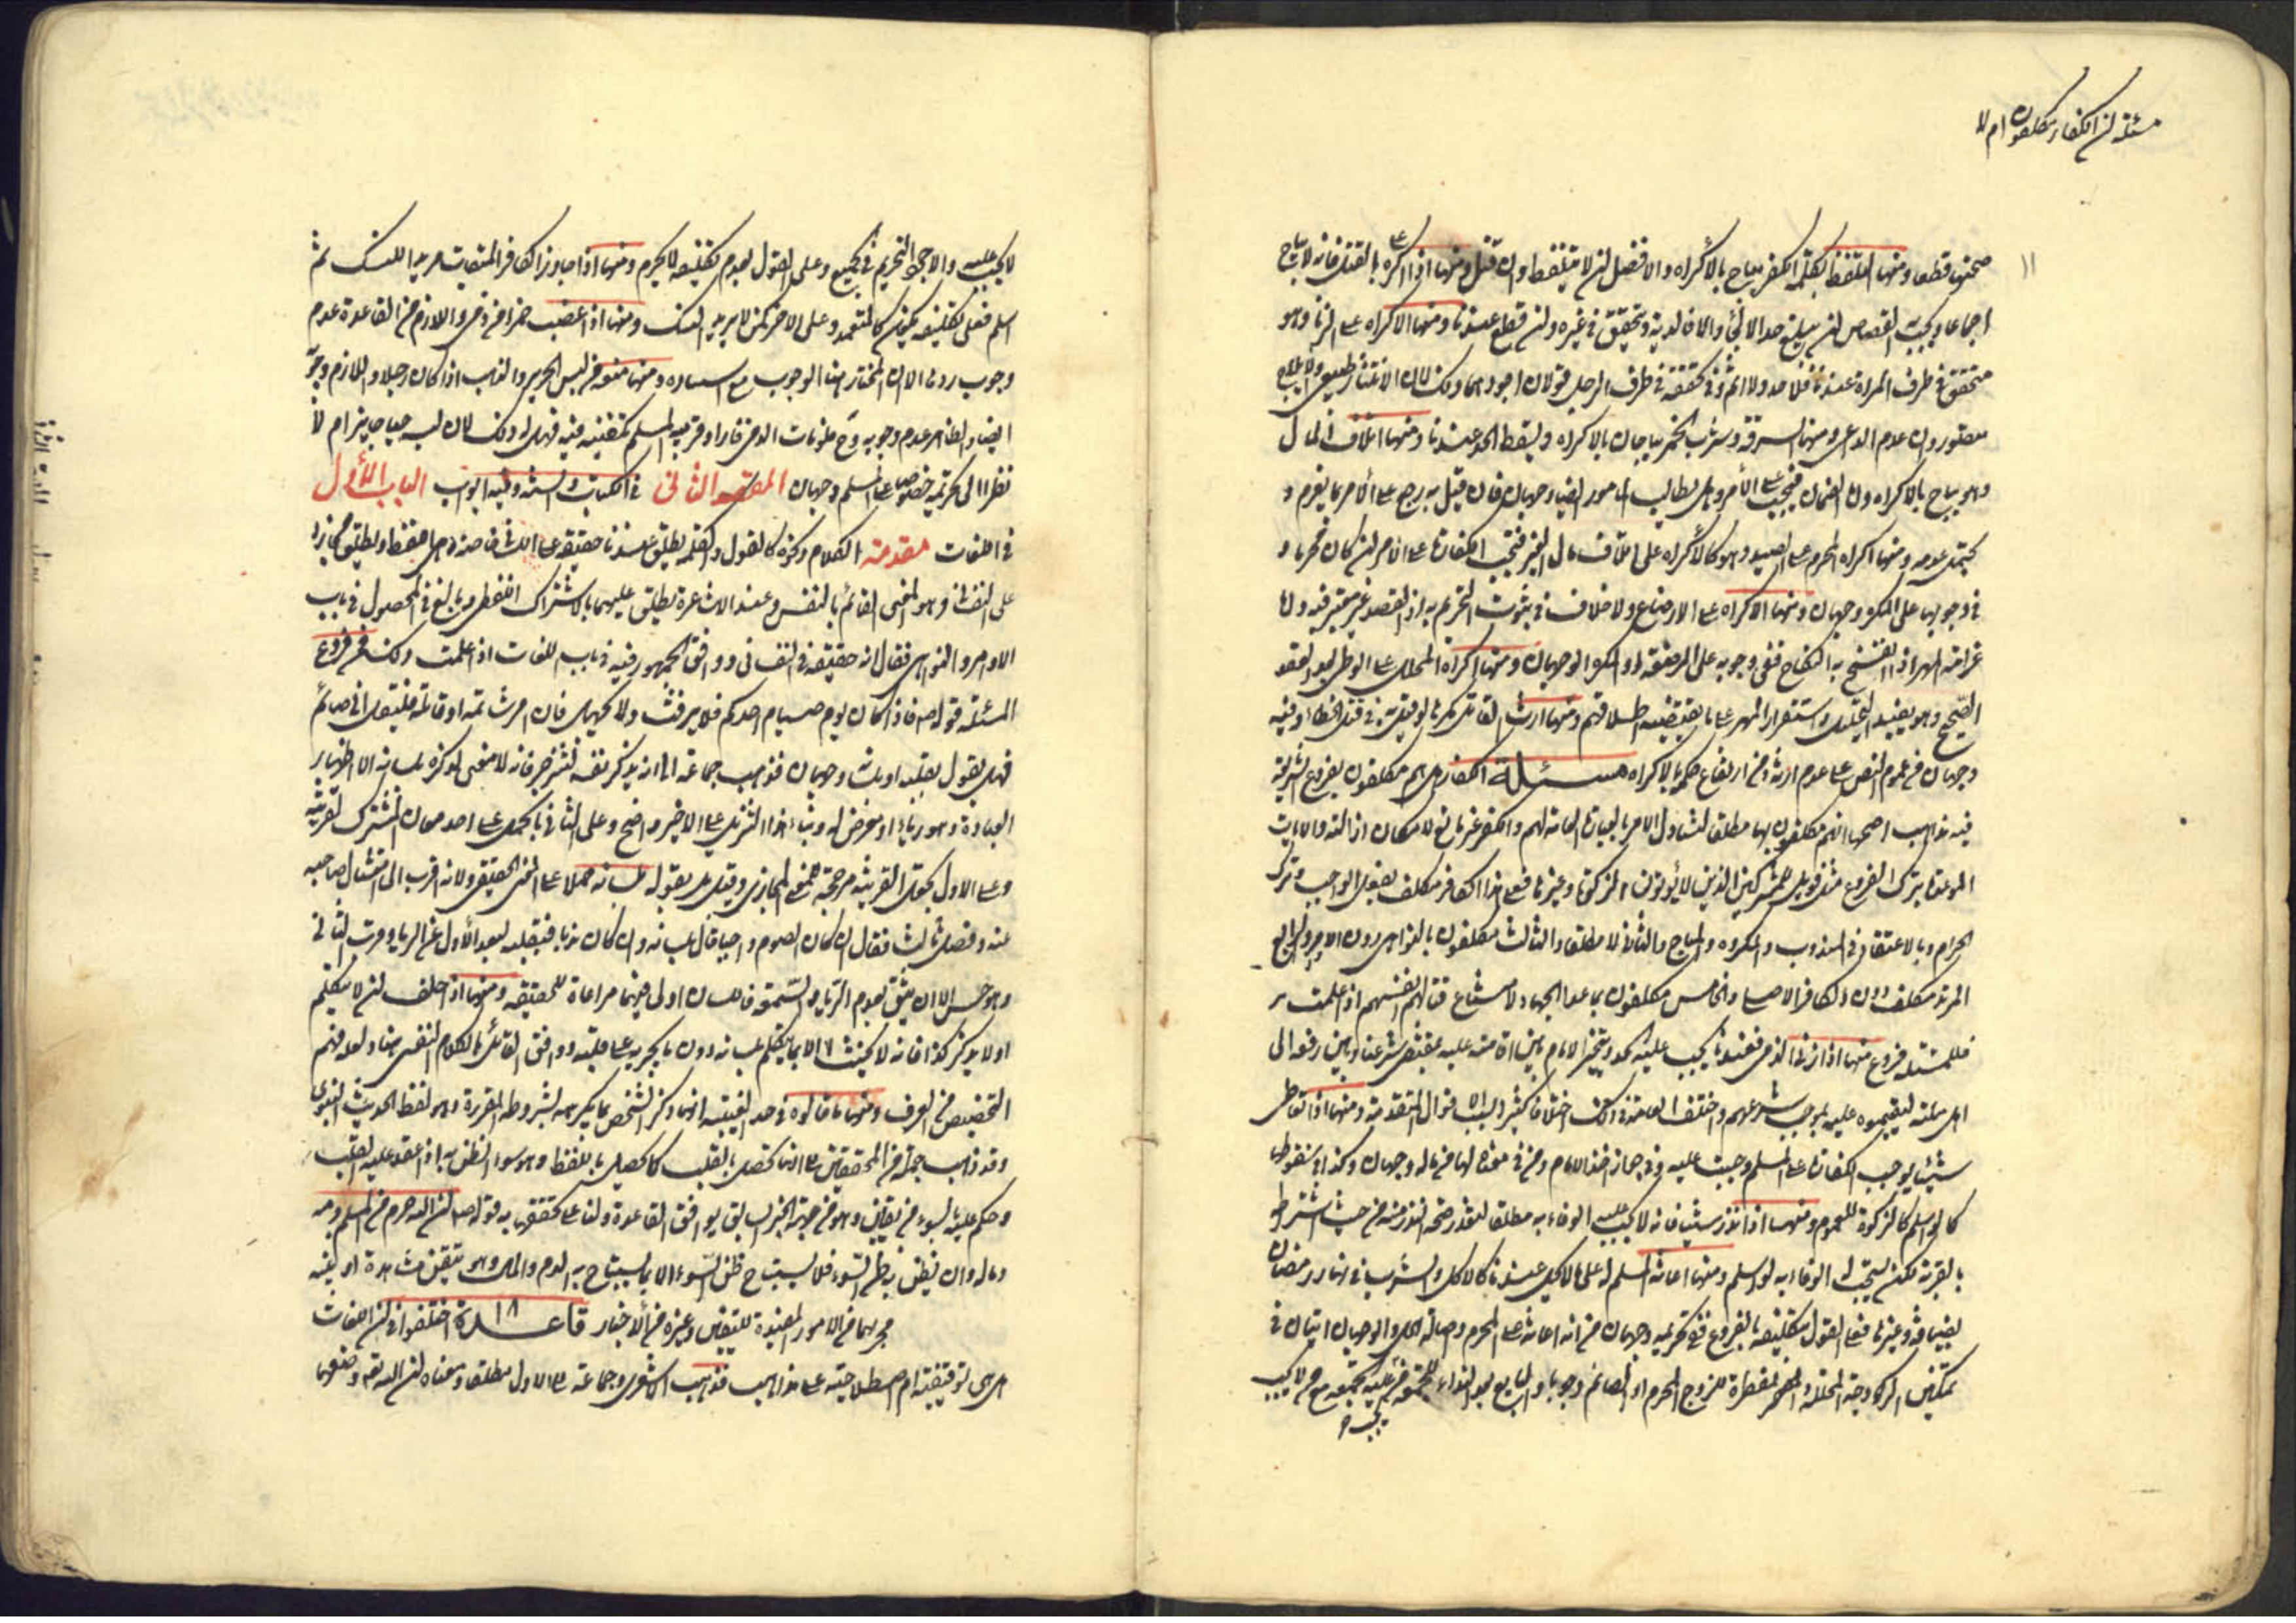 مسئلة ان الكفار مكلفون ام لا
١١
صحتها قطعا ومنها التلفظ بكلمة الكفر يباح بالاكراه والافضل ان لا يتلفظ وان قتل ومنها اذا اكره على القتل فانه لا يباح
اجماعا ويجب القصاص ان لم يبلغ حد الالجاء والا فالدية ويتحقق في غيره وان قطع عندنا ومنها الاكراه على الزنا وهو
متحقق في طرف المراة عندنا فلا حد ولا اثم وفي تحققه في طرف الرجل قولان اجودهما ذلك لان الانتشار طبيعي والايلاج
مقدور وان عدم الداعي ومنها السرقة وشرب الخمر يباحان بالاكراه ويسقط الحد عندنا ومنها اتلاف المال
وهو يباح بالاكراه وان الضمان فيجب على الآمر وهل يطالب المامور ايضا وجهان فان قيل به رجع على الآمر بما يغرم و
يحتمل عدمه ومنها اكراه المحرم على الصيد وهو كالاكراه على اتلاف مال الغير فتجب الكفارة على الآمر ان كان محرما و
في وجوبها على المكره وجهان ومنها الاكراه على الارضاع ولا خلاف في ثبوت التحريم به اذ القصد غير معتبر فيه واما
غرامة المهر اذا انفسخ به النكاح ففي وجوبه على المرضعة او المكره الوجهان ومنها اكراه المحلل على الوطي بعد العقد
الصحيح وهو يفيد التحليل واستقرار المهر على ما يقتضيه اطلاقهم ومنها ارث القاتل مكرها لو قيل به في قتل الخطاء وفيه
وجهان من عموم النص على عدم ارثه ومن ارتفاع حكمه بالاكراه مسئلة الكفار هل هم مكلفون بفروع الشريعة
فيه مذاهب اصحها انهم مكلفون بها مطلقا لتناول الامر بالعبادة العامة لهم والكفر غير مانع لامكان ازالته والايات
الموعدة بترك الفروع مثل فويل للمشركين الذين لا يؤتون الزكوة وغيرها فعلى هذا الكافر مكلف بفعل الواجب وترك
الحرام وبالاعتقاد في المندوب والمكروه والمباح والثاني لا مطلقا والثالث مكلفون بالنواهي دون الاوامر والرابع
المرتد مكلف دون الكافر الاصلي والخامس مكلفون بما عدا الجهاد لامتناع قتالهم انفسهم اذا علمت
فللمسئلة فروع منها اذا زنى الذمي فعندنا يجب عليه الحد ويتخير الامام بين اقامته عليه بمقتضى شرعنا وبين رفعه الى
اهل ملته ليقيموه عليه بموجب شرعهم واختلف العامة في ذلك اختلافا كثيرا بسبب الاقوال المتقدمة ومنها اذا تعاطى
شيئا يوجب الكفارة على المسلم وجبت عليه وفي جواز اخذ الامام ومن في معناه لها من ماله وجهان وكذا في سقوطها
كما لو اسلم كالزكوة للعموم ومنها اذا نذر شيئا فانه لا يجب عليه الوفاء به مطلقا لتعذر صحة النذر منه من حيث اشتراطه
بالقربة لكن يستحب له الوفاء به لو اسلم ومنها اعانة المسلم له على ما لا يحل عندنا كالاكل والشرب في نهار رمضان
بضيافة وغيرها فعلى القول بتكليفه بالفروع ففي تحريمه وجهان من انه اعانة على المحرم واصالة الحل والوجهان اتيان في
تمكين الزوجة المحللة والمفطرة للزوج المحرم او الصائم وجوبا والبايع بعد النداء للجمعة من عليه جمعة مع من لا يجب
يجب
لا يجب عليه والاجود التحريم في الجميع وعلى القول بعدم تكليفه لا يحرم ومنها اذا جاوز الكافر الميقات مريدا للنسك ثم
اسلم فعلى تكليفه يكون كالمتعمد وعلى الاخر كمن لا يريد النسك ومنها اذا غصب خمرا من ذمي واللازم من القاعدة عدم
وجوب ردها الا ان المختار هنا الوجوب مع استتاره ومنها منعه من لبس الحرير والذهب اذا كان رجلا واللازم وجوبه
ايضا والظاهر عدم وجوبه وح فلو مات الذمي فاراد قريبه المسلم تكفينه فيه فهل له ذلك لانه لبسه حيا جايز ام لا
نظرا الى تحريمه خصوصا على المسلم وجهان المقصد الثاني في الكتاب والسنة وفيه ابواب الباب الاول
في اللغات مقدمة الكلام وذكره كالقول والكلمة يطلق عندنا حقيقة على اللساني خاصة وهي اللفظ ويطلق مجازا
على النفساني وهو المعنى القائم بالنفس وعند الاشاعرة يطلق عليهما بالاشتراك اللفظي وبالغ في المحصول في باب
الاوامر والنواهي فقال انه حقيقة في النفساني ووافق الجمهور فيه في باب اللغات اذا علمت ذلك فمن فروع
المسئلة قوله ص فاذا كان يوم صيام احدكم فلا يرفث ولا يجهل فان امرء شاتمه او قاتله فليقل اني صائم
فهل يقول بقلبه او بلسانه وجهان فذهب جماعة الى انه يذكر نفسه لتنزجر فانه لا معنى لذكره بلسانه الا اظهار
العبادة وهو رياء او معرض له وبناء هذا التنزيل على الاخير واضح وعلى الثاني بالحمل على احد معاني المشترك لقرينة
وعلى الاول بجعل القرينة مرجحة للمعنى المجازي وقيل بل يقوله بلسانه حملا على المعنى الحقيقي ولانه اقرب الى امساك صاحبه
عنه وفصل ثالث فقال ان كان الصوم واجبا قال بلسانه وان كان ندبا فبقلبه لبعد الاول عن الرياء وقرب الثاني
وهو حسن الا ان يثق بعدم الرياء والسمعة فاللسان اولى فيهما مراعاة للحقيقة ومنها اذا حلف ان لا يتكلم
او لا يذكر كذا فانه لا يحنث الا بما يتكلم بلسانه دون ما يجريه على قلبه ووافق القائل بالكلام النفسي هنا ولعله فهم
التخصيص من العرف ومنها ما قالوه في حد الغيبة انها ذكر الشخص بما يكرهه بشروطه المقررة وهو لفظ الحديث النبوي
وقد ذهب جماعة من المحققين الى انها تحصل بالقلب كما تحصل باللفظ وهو سوء الظن به اذا عقد عليه القلب
وحكم عليه بالسوء من غير يقين وهو من جهة الخبر السابق يوافق القاعدة ولنا على تحققها به قوله ص ان الله حرم من المسلم دمه
وماله وان يظن به ظن السوء فلا يستباح ظن السوء الا بما يستباح به الدم والمال وهو يتيقن مشاهدة او بينة
مجريهما من الامور المفيدة لليقين وغيره من الاخبار قاعدة ١٨ اختلفوا في ان اللغات
هل هي توقيفية ام اصطلاحية على مذاهب فذهب الاشعري وجماعة الى الاول مطلقا ومعناه ان الله تعالى وضعها